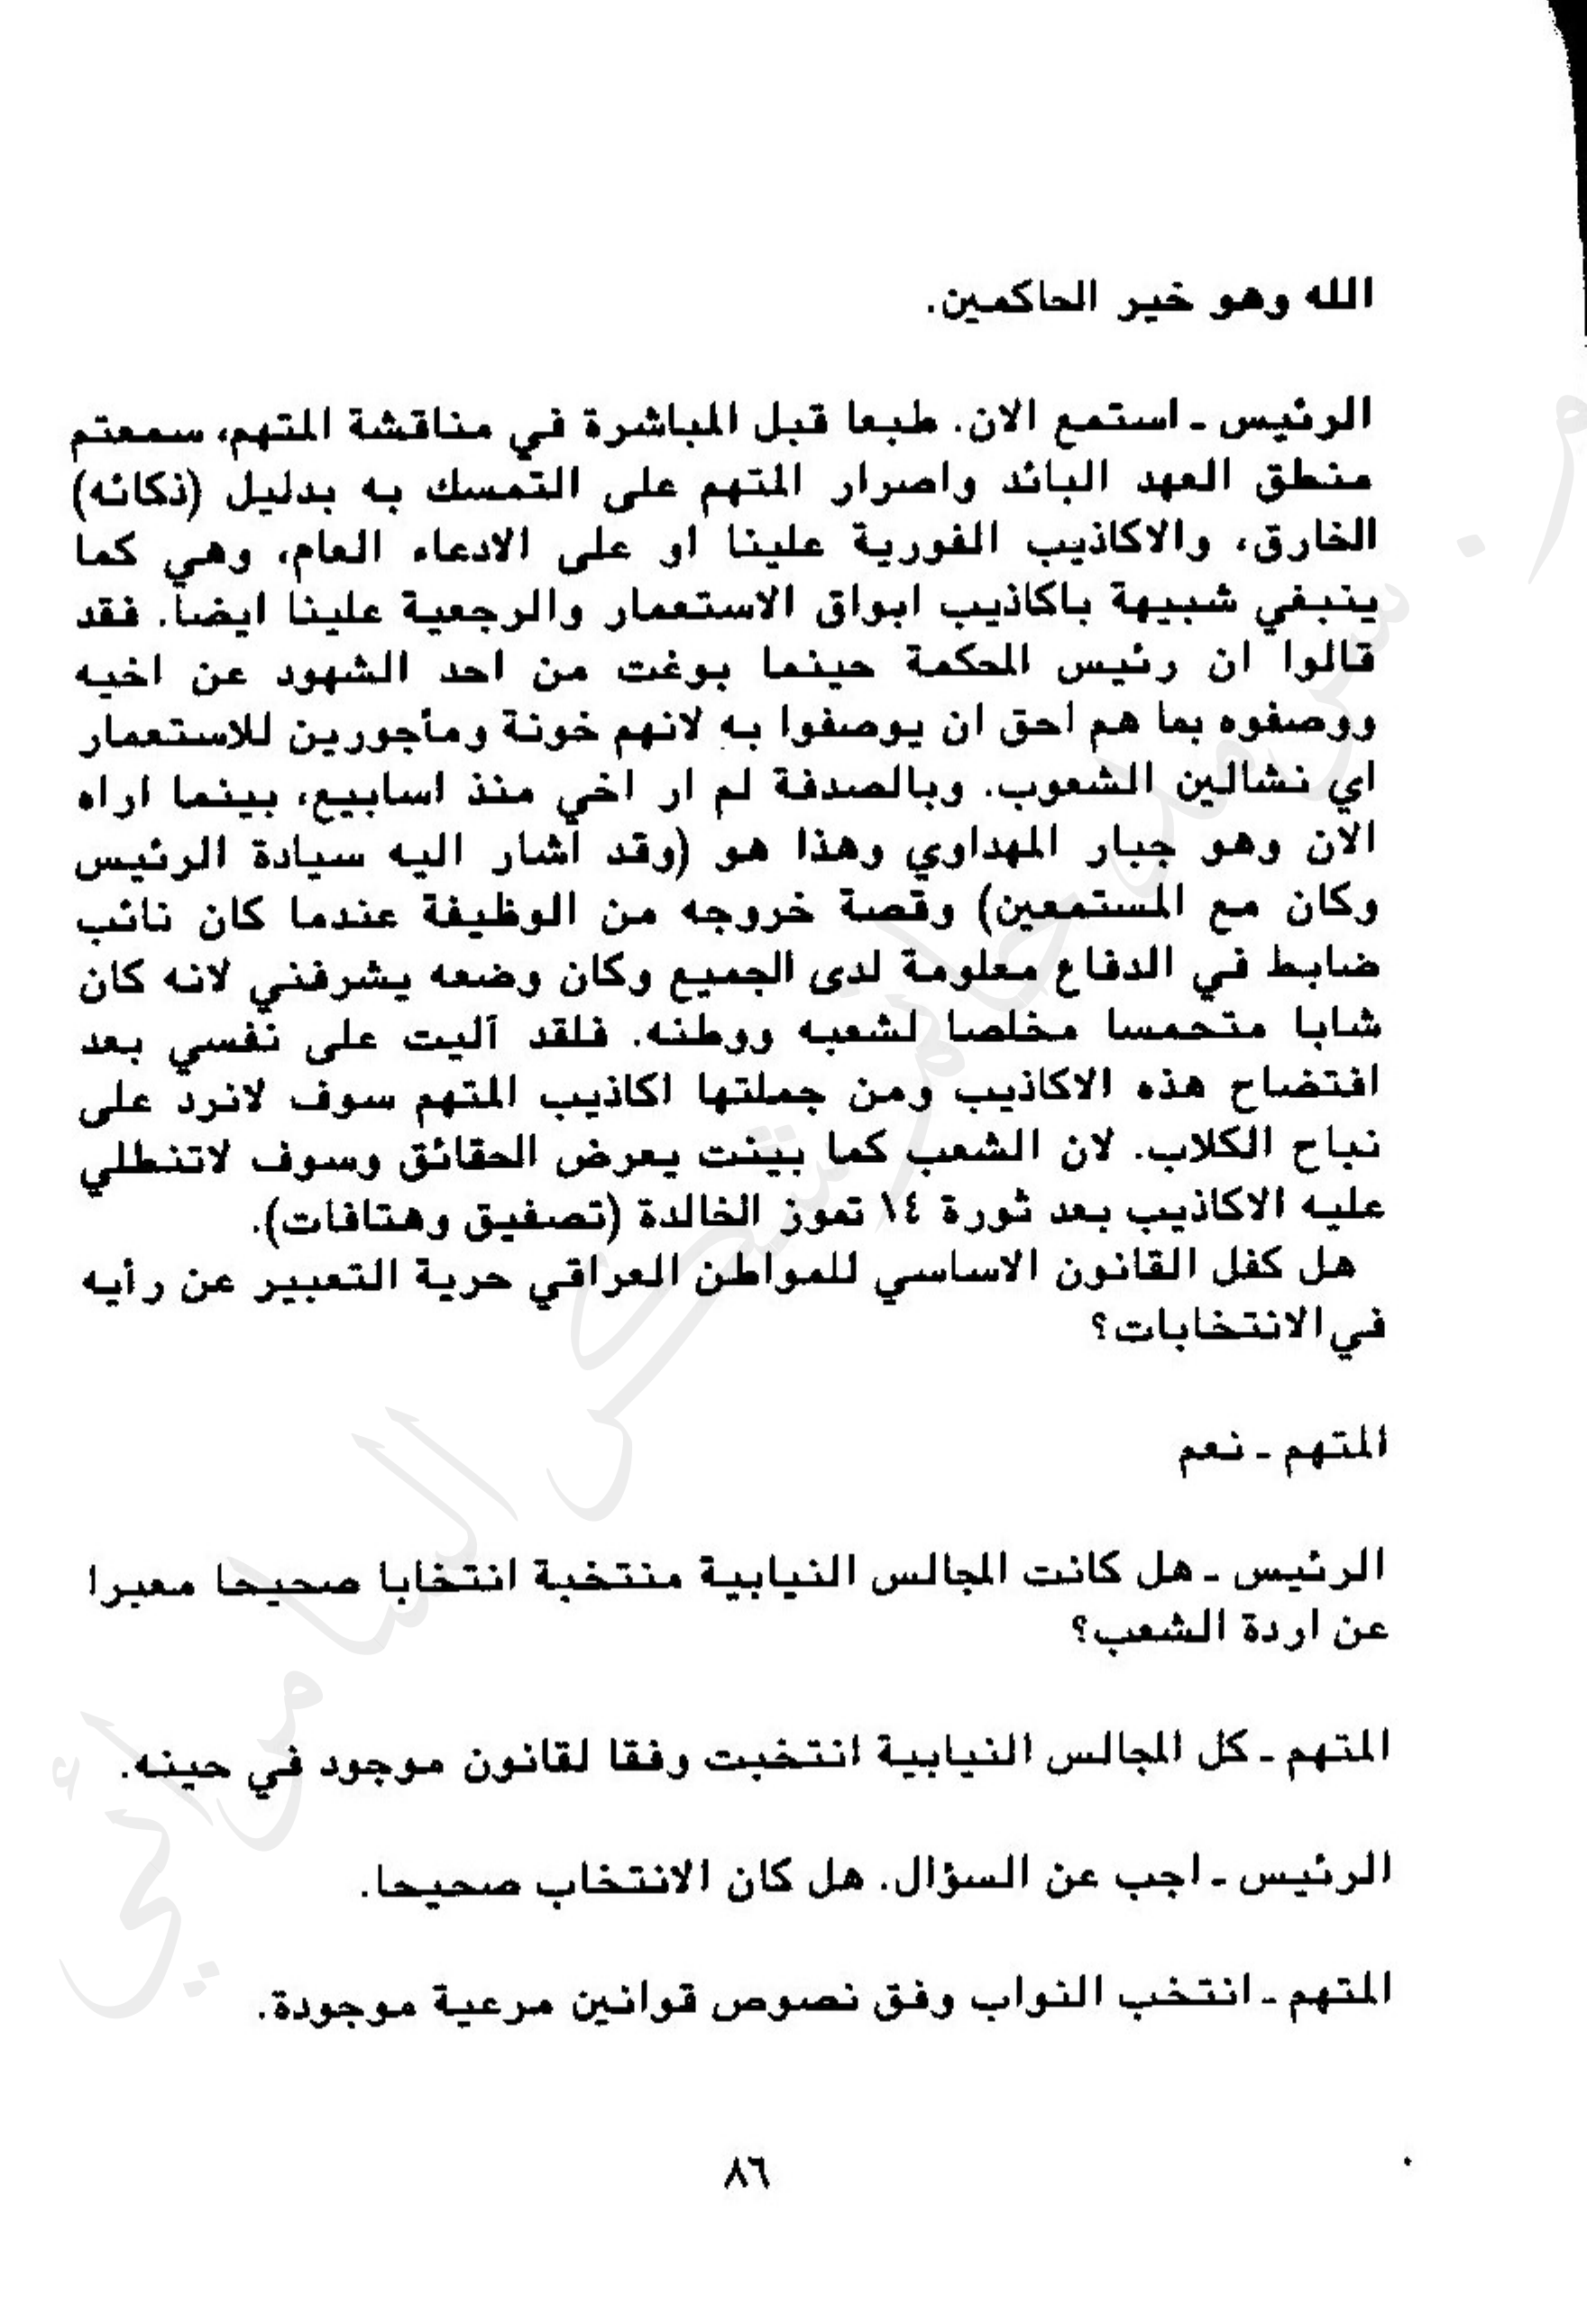 الله وهو خير الحاكمين.
الرئيس ـ استمع الان. طبعا قبل المباشرة في مناقشة المتهم، سمعتم
منطق العهد البائد واصرار المتهم على التمسك به بدليل (ذكائه)
الخارق، والاكاذيب الفورية علينا او على الادعاء العام، وهي كما
ينبغي شبيهة باكاذيب ابواق الاستعمار والرجعية علينا ايضاً. فقد
قالوا ان رئيس المحكمة حينما بوغت من احد الشهود عن اخيه
ووصفوه بما هم احق ان يوصفوا به لانهم خونة ومأجورين للاستعمار
اي نشالين الشعوب. وبالصدفة لم ار اخي منذ اسابيع، بينما اراه
الان وهو جبار المهداوي وهذا هو (وقد أشار اليه سيادة الرئيس
وكان مع المستمعين) وقصة خروجه من الوظيفة عندما كان نائب
ضابط في الدفاع معلومة لدى الجميع وكان وضعه يشرفني لانه كان
شابا متحمسا مخلصا لشعبه ووطنه. فلقد آليت على نفسي بعد
افتضاح هذه الاكاذيب ومن جملتها اكاذيب المتهم سوف لانرد على
نباح الكلاب. لان الشعب كما بينت يعرض الحقائق وسوف لاتنطلي
عليه الاكاذيب بعد ثورة ١٤ تموز الخالدة (تصفيق وهتافات).
هل كفل القانون الاساسي للمواطن العراقي حرية التعبير عن رأيه
في الانتخابات؟
المتهم ـ نعم
الرئيس ـ هل كانت المجالس النيابية منتخبة انتخابا صحيحا معبرا
عن اردة الشعب؟
المتهم ـ كل المجالس النيابية انتخبت وفقا لقانون موجود في حينه.
الرئيس ـ اجب عن السؤال. هل كان الانتخاب صحيحا.
المتهم ـ انتخب النواب وفق نصوص قوانين مرعية موجودة.
٨٦